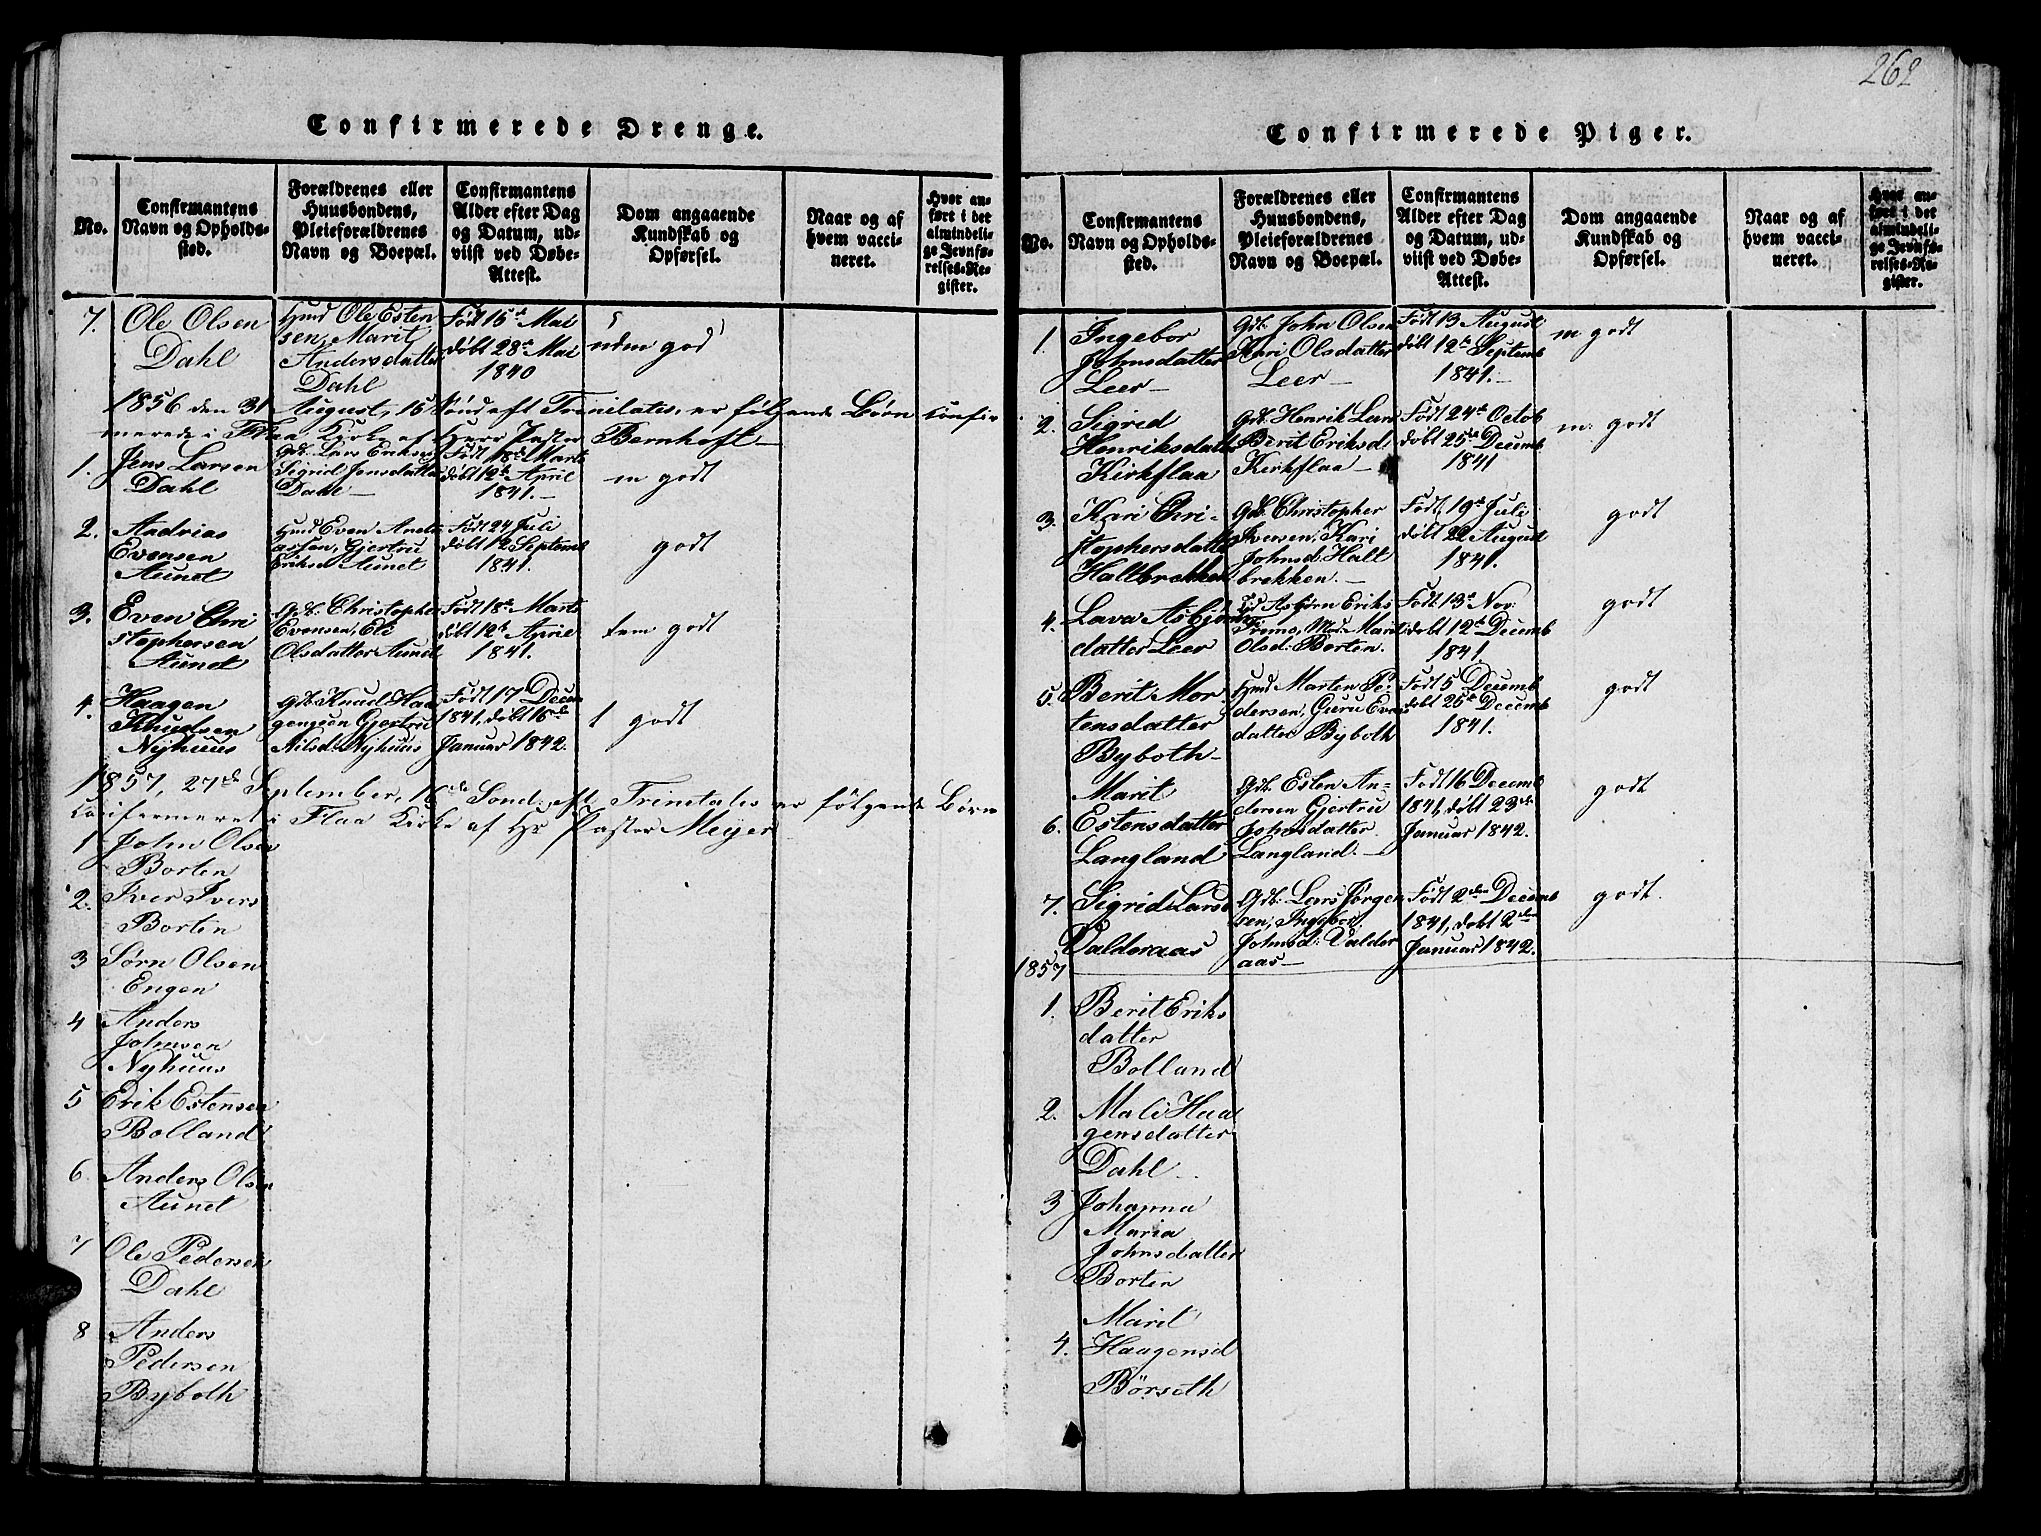 262
Confirmerede Drenge.
No.
Confirmantens
Navn og Opholds-
sted.
Forældrenes eller
Huusbondens,
Pleieforældrenes
Navn og Boepæl.
Confirmantens
Alder efter Dag
og Datum, ud-
viist ved Døbe-
Attest.
Dom angaaende
Kundskab og
Opførsel.
Naar og af
hvem vacci-
neret.
Hvor an-
ført i det
almindeli-
ge Jevnfø-
relses-Re-
gister.
7.
Ole Olsen
Dahl
Huud Ole Esten
sen, Marit
Andersdatter
Dahl
Født 15de Mai
døbt 28de Mai
1840
uden god
1856 den 31 August, 15 Sønd eft Trinitatis, er følgende Børn confir
merede i Flaa Kirke af Herr Pastor Bernhoft
1.
Jens Larsen
Dahl
Gdb. Lars Eriksen
Sigrid Jensdatter
Dahl
Født 18de Marts
døbt 12te April
1841.
m godt
2.
Andrias
Evensen
Aunet
Huud Even
Gjertru
Eriksd Aunet
Født 24 Juli
døbt 12 Septemb
1841.
godt
3.
Even Chri
stophersen
Aunet
Gdb: Christopher
Evensen, Eli
Olsdatter Aunet
Født 18de Marts
døbt 12te April
1841.
tem godt
4.
Haagen
Knudsen
Nyhuus
Gdb Knud Haa
gensen Gjertru
Nilsd: Nyhuus
Født 17 Decem
1841, døbt 16de
Januar 1842.
godt
1857, 27de September, 16de Sønd: eft Trinitatis er følgende Børn
Confermeret i Flaa Kirke af Hr Pastor Meyer
1
John Olsen
Borten
2.
Iver Ivers
Borten
3
Sørn Olsen
Engen
4
Anders
Johnsen
Nyhuus
5
Erik Estensen
Bolland
6.
Anders Olsen
Aunet
7
Ole Pedersen
Dahl
8
Anders
Pedersen
Byboth
Confirmerede Piger.
No.
Confirmantens
Navn og Opholds-
sted.
Forældrenes eller
Huusbondens,
Pleieforældrenes
Navn og Boepæl.
Confirmantens
Alder efter Dag
og Datum, ud-
viist ved Døbe-
Attest.
Dom angaaende
Kundskab og
Opførsel.
Naar og af
hvem vacci-
neret.
Hvor an-
ført i det
almindeli-
ge Jevnfø-
relses-Re-
gister.
1.
Ingebor
Johnsdatter
Leer
Gdb. John Olsen
Kari Olsdatter
Leer
Født 13 August
døbt 12te Septemb
1841.
m godt
2.
Sigrid
Henriksdatt
Kirkflaa
Gdb. Henrik Lars
Berit Eriksd
Kirkflaa
Født 24de Octob
døbt 25de Decemb
1841
m. godt
3.
Kari Chri-
stophersdatte
Haltbrekken
Gdb. Christopher
Iversen, Kari
Johnsd: Halt
brekken.
Født 19de Juli
døbt 22 August
1841.
godt
4.
Lava Asbjørns
datter Leer
Asbjørn Eriks
Mod. Marit
Olsd: Borten.
Født 13de Nov:
døbt 12te Decemb
1841.
godt
5.
Berit Mor
tensdatter
Byboth
Huud Marten Pe-
dersen, Guru Evens
datter Byboth
Født 5 Decemb
døbt 25de Decemb
1841.
godt
6.
Marit
Estensdatter
Langland
Gdb. Esten An-
dersen Gjertru
Johnsdatter
Langland.
Født 16 Decemb
1841, døbt 23de
Januar 1842.
godt
7.
Sigrid Larsd
Valderaas
Gdb: Lars Jørgen
sen, Ingebor
Johnsd: Valder
aas
Født 2den Decemb
1841, døbt 2den
Januar 1842.
godt.
1857
1.
Berit Eriks
datter
Bolland
2.
Mali Haa
gensdatter
Dahl
3
Johanna
Maria
Johnsdatter
Borten
4.
Marit
Haagensd
Börseth